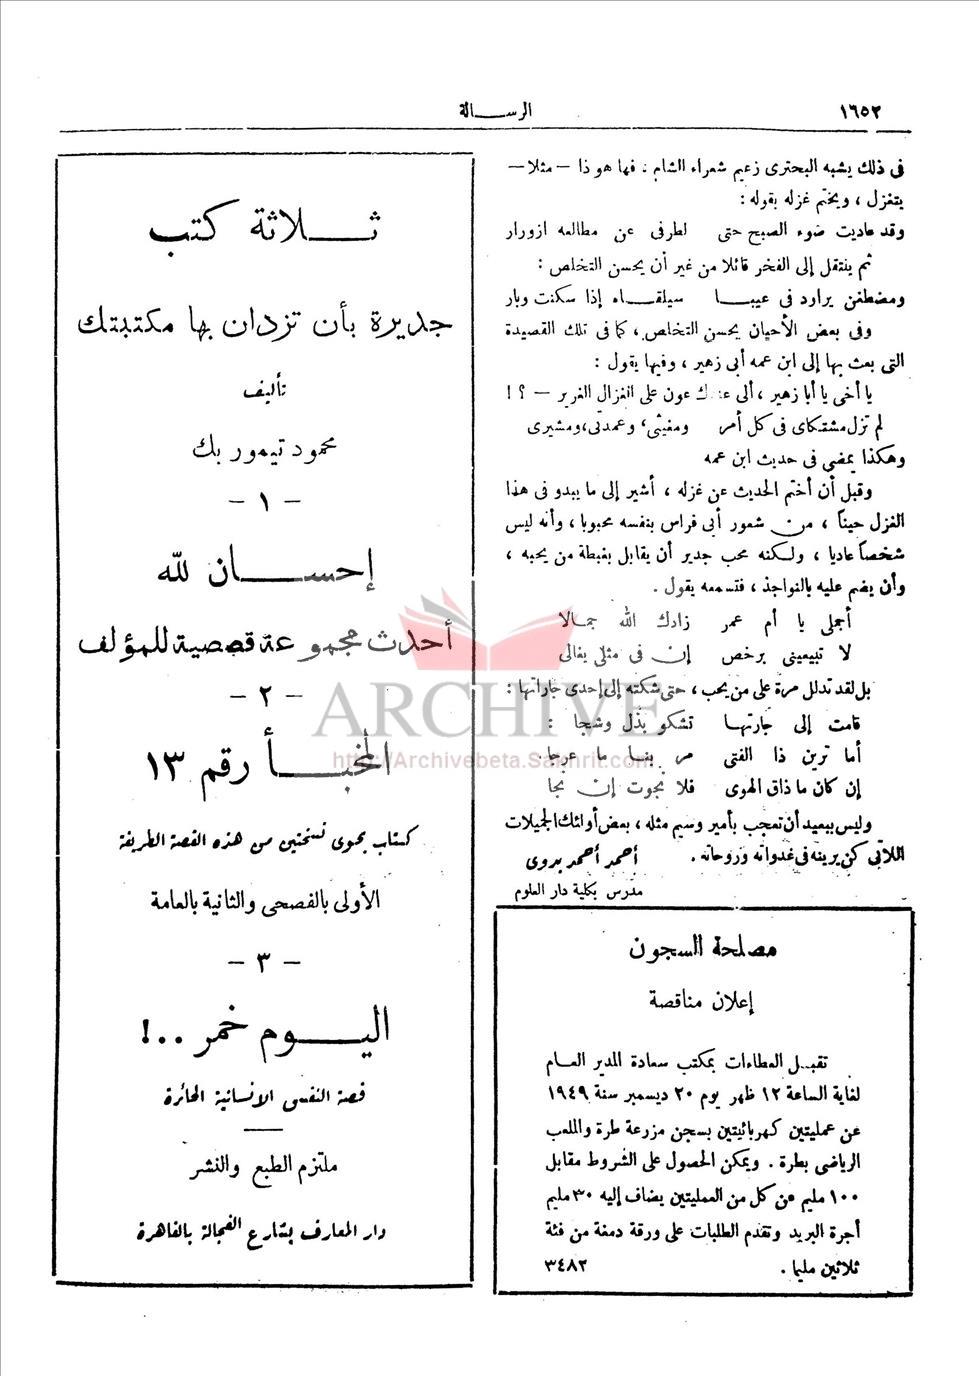 ١٦٥٢
الرسالة
فى ذلك يشبه البحترى زعيم شعراء الشام ، فها هو ذا — مثلا —
يتغزل ، ويختم غزله بقوله :
وقد عاديت ضوء الصبح حتى لطرفى عن مطالعه ازورار
ثم ينتقل إلى الفخر قائلا من غير أن يحسن التخلص :
ومضطغن يراود فى عيبا سيلقاه إذا سكنت وبار
وفى بعض الأحيان يحسن التخلص ، كما فى تلك القصيدة
التى بعث بها إلى ابن عمه أبى زهير ، وفيها يقول :
يا أخى يا أبا زهير ، ألى عندك عون على الغزال الغرير — ؟ !
لم تزل مشتكاى فى كل أمر ومغيثى، وعمدتى، ومشيرى
وهكذا يمضى فى حديث ابن عمه
وقبل أن أختم الحديث عن غزله ، أشير إلى ما يبدو فى هذا
الغزل حيناً ، من شعور أبى فراس بنفسه محبوبا ، وأنه ليس
شخصاً عاديا ، ولكنه محب جدير أن يقابل بغبطة من يحبه ،
وأن يضم عليه بالنواجذ ، فتسمعه يقول .
أجملى يا أم عمر زادك الله جمالا
لا تبيعينى برخص إن فى مثلى يغالى
بل لقد تدلل مرة على من يحب ، حتى شكته إلى إحدى جاراتها :
قامت إلى جارتها تشكو بذل وشجا :
أما ترين ذا الفتى مر بنا ما عرجا
إن كان ما ذاق الهوى فلا نجوت إن نجا
وليس ببعيد أن تعجب بأمير وسيم مثله ، بعض أولئك الجميلات
اللاتى كن يرينه فى غدواته وروحاته .
أحمد أحمد بدوى
مدرس بكلية دار العلوم
مصلحة السجون
إعلان مناقصة
تقبل العطاءات بمكتب سعادة المدير العام
لغاية الساعة ١٢ ظهر يوم ٢٠ ديسمبر سنة ١٩٤٩
عن عمليتين كهربائيتين بسجن مزرعة طرة والملعب
الرياضى بطرة . ويمكن الحصول على الشروط مقابل
١٠٠ مليم عن كل من العمليتين يضاف إليه ٣٠ مليم
أجرة البريد وتقدم الطلبات على ورقة دمغة من فئة
ثلاثين مليما . ٣٤٨٢
ثلاثة كتب
جديرة بأن تزدان بها مكتبتك
تأليف
محمود تيمور بك
— ١ —
إحسان لله
أحدث مجموعة قصصية للمؤلف
— ٢ —
المخبأ رقم ١٣
كتاب يحوى نسختين من هذه القصة الطريفة
الأولى بالفصحى والثانية بالعامة
— ٣ —
اليوم خمر ..!
قصة النفس الانسانية الحائرة
ملتزم الطبع والنشر
دار المعارف بشارع الفجالة بالقاهرة
ARCHIVE
http://Archivebeta.Sakhrit.com